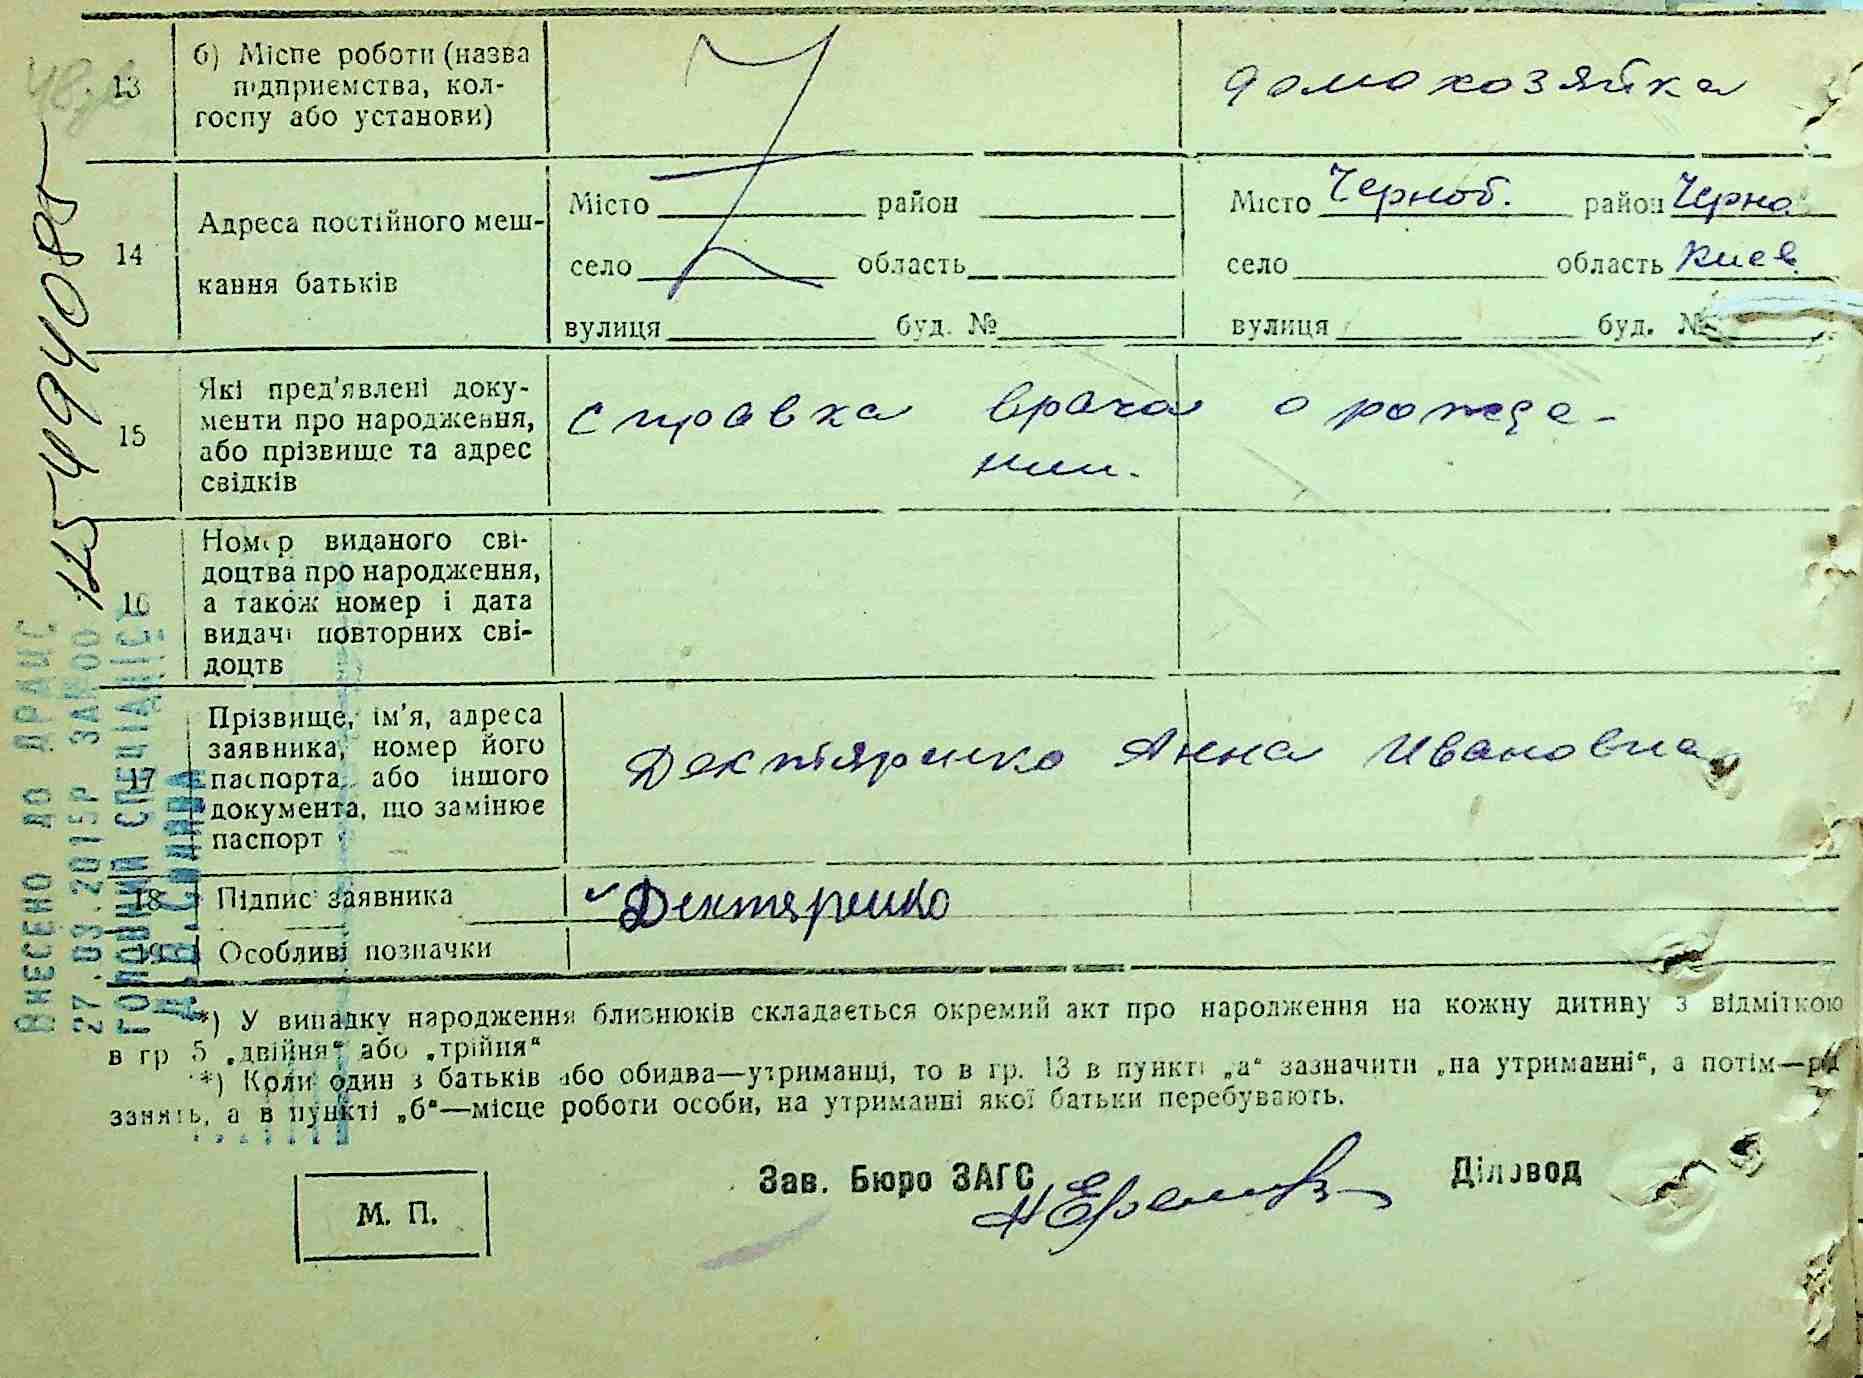 13
б) Місце роботи (назва
підприємства, кол-
госпу або установи)
домохозяйка
14
Адреса постійного меш-
кання батьків
Місто район
село область
вулиця буд. №
Місто Черноб. район Черно
село область Киев.
вулиця буд. №
15
Які пред'явлені доку-
менти про народження,
або прізвище та адрес
свідків
справка врача о рожде-
нии.
16
Номер виданого сві-
доцтва про народження,
а також номер і дата
видачі повторних сві-
доцтв
17
Прізвище, ім'я, адреса
заявника, номер його
паспорта, або іншого
документа, що замінює
паспорт
Дектяренко Анна Ивановна
18
Підпис заявника
Дектяренко
19
Особливі позначки
*) У випадку народження близнюків складається окремий акт про народження на кожну дитину з відміткою
в гр 5 „двійня“ або „трійня“
*) Коли один з батьків або обидва—утриманці, то в гр. 13 в пункті „а“ зазначити „на утриманні“, а потім—рід
занять, а в пункті „б“—місце роботи особи, на утриманні якої батьки перебувають.
М. П.
Зав. Бюро ЗАГС
Діловод
ВНЕСЕНО ДО ДРАЦС
27.03.2015Р ЗА №00
115494085
ГОЛОВНИЙ СПЕЦІАЛІСТ